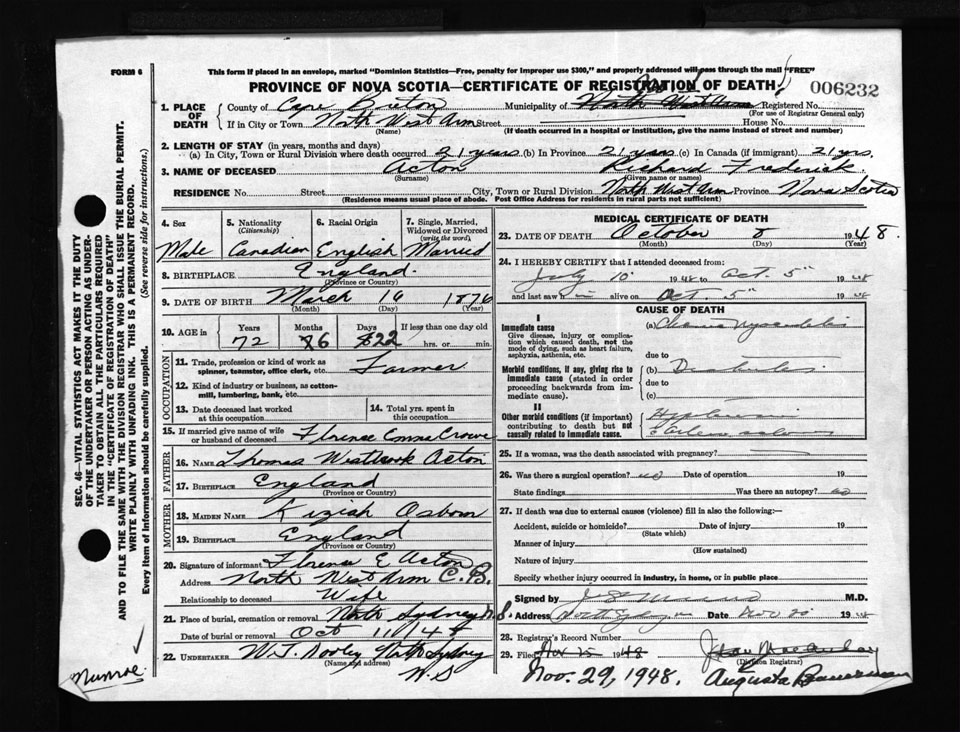 FORM 6
This form if placed in an envelope, marked "Dominion Statistics—Free, penalty for improper use $300," and properly addressed will pass through the mail "FREE"
PROVINCE OF NOVA SCOTIA—CERTIFICATE OF REGISTRATION OF DEATH
006232
1. PLACE OF DEATH
County of Cape Breton Municipality of Registered No.
(For use of Registrar General only)
If in City or Town North West Arm Street House No.
(Name) (If death occurred in a hospital or institution, give the name instead of street and number)
2. LENGTH OF STAY (in years, months and days)
(a) In City, Town or Rural Division where death occurred 21 years (b) In Province 21 years (c) In Canada (if immigrant) 21 yrs.
3. NAME OF DECEASED Acton Richard Frederick
(Surname) (Given name or names)
RESIDENCE No. Street City, Town or Rural Division North West Arm Province Nova Scotia
(Residence means usual place of abode. Post Office Address for residents in rural parts not sufficient)
4. Sex
Male
5. Nationality
(Citizenship)
Canadian
6. Racial Origin
English
7. Single, Married, Widowed or Divorced
(write the word)
Married
8. BIRTHPLACE England
(Province or Country)
9. DATE OF BIRTH March 16 1876
(Month) (Day) (Year)
10. AGE in Years Months Days If less than one day old
72 6 22 hrs. or min.
OCCUPATION
11. Trade, profession or kind of work as spinner, teamster, office clerk, etc. Farmer
12. Kind of industry or business, as cotton-mill, lumbering, bank, etc.
13. Date deceased last worked at this occupation
14. Total yrs. spent in this occupation
15. If married give name of wife or husband of deceased Florence Emma Crowe
FATHER
16. NAME Thomas Westbrook Acton
17. BIRTHPLACE England
(Province or Country)
MOTHER
18. MAIDEN NAME Kiziah Osborn
19. BIRTHPLACE England
(Province or Country)
20. Signature of informant Florence E Acton
Address North West Arm C.B.
Relationship to deceased Wife
21. Place of burial, cremation or removal North Sydney N.S.
Date of burial or removal Oct 11/48
22. UNDERTAKER W.T. Dooley North Sydney
(Name and address)
N.S
MEDICAL CERTIFICATE OF DEATH
23. DATE OF DEATH October 8 1948.
(Month) (Day) (Year)
24. I HEREBY CERTIFY that I attended deceased from:
July 10 1948 to Oct. 5 1948
and last saw h im alive on Oct. 5 1948
CAUSE OF DEATH
I
Immediate cause
Give disease, injury or complication which caused death, not the mode of dying, such as heart failure, asphyxia, asthenia, etc.
(a) Chronic Myocarditis
due to
Morbid conditions, if any, giving rise to immediate cause (stated in order proceeding backwards from immediate cause).
(b) Diabetes
due to
(c)
II
Other morbid conditions (if important) contributing to death but not causally related to immediate cause.
25. If a woman, was the death associated with pregnancy?
26. Was there a surgical operation? no Date of operation 19
State findings Was there an autopsy? no
27. If death was due to external causes (violence) fill in also the following:—
Accident, suicide or homicide? Date of injury 19
(State which)
Manner of injury
(How sustained)
Nature of injury
Specify whether injury occurred in industry, in home, or in public place
Signed by M.D.
Address North Sydney Date Nov 1948
28. Registrar's Record Number
29. Filed Nov 15 1948
(Division Registrar)
Nov. 29, 1948. Augusta Bannerman
SEC. 46—VITAL STATISTICS ACT MAKES IT THE DUTY
OF THE UNDERTAKER OR PERSON ACTING AS UNDER-
TAKER TO OBTAIN ALL THE PARTICULARS REQUIRED
IN THE "CERTIFICATE OF REGISTRATION OF DEATH"
AND TO FILE THE SAME WITH THE DIVISION REGISTRAR WHO SHALL ISSUE THE BURIAL PERMIT.
WRITE PLAINLY WITH UNFADING INK. THIS IS A PERMANENT RECORD.
Every item of Information should be carefully supplied. (See reverse side for instructions.)
Munroe